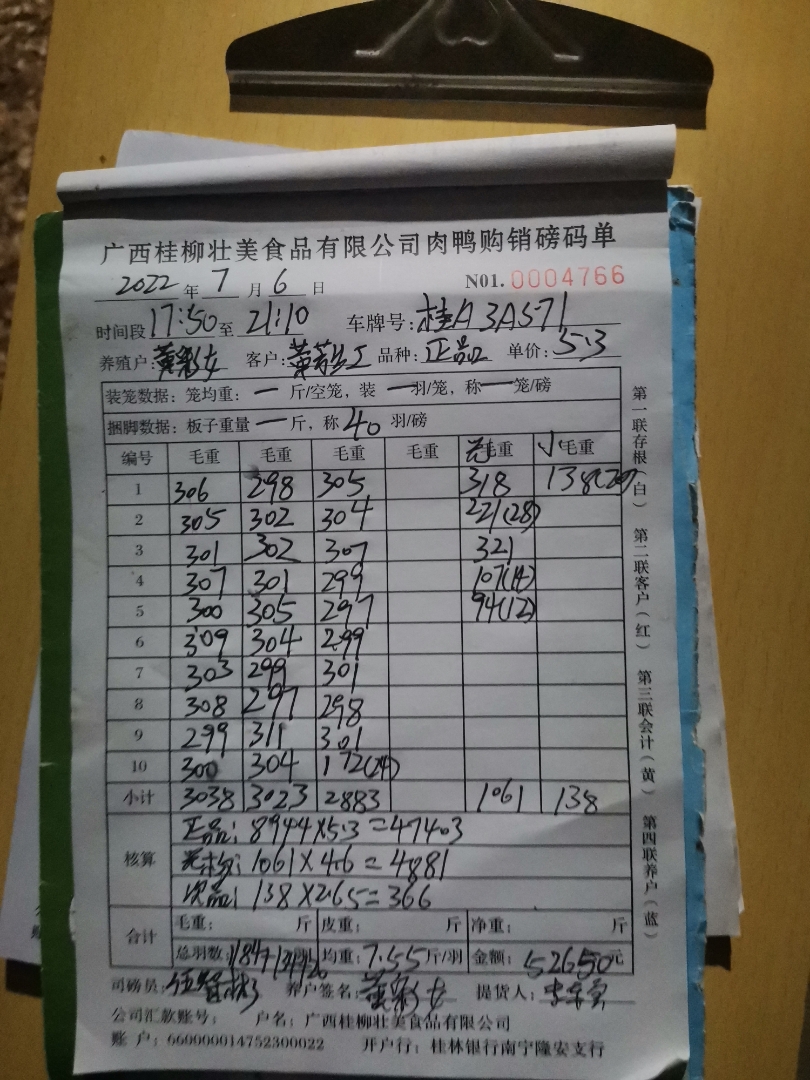 广西桂柳壮美食品有限公司肉鸭购销磅码单
2022年7月6日 N01.0004766
时间段17:50至21:10 车牌号:桂A3A571
养殖户:黄彩女 客户: 品种:正品 单价:5.3
装笼数据:笼均重:一斤/空笼,装一羽/笼,称一笼/磅
捆脚数据:板子重量一斤,称40羽/磅
编号 毛重 毛重 毛重 毛重 毛重 小毛重
1 306 298 305 318 138(20)
2 305 302 304 221(28)
3 301 302 307 321
4 307 301 299 107(14)
5 300 305 297 94(12)
6 309 304 299
7 303 299 301
8 308 297 298
9 299 311 301
10 300 304 172(24)
小计 3038 3023 2883 1061 138
核算
正品:8944×5.3=47403
1061×4.6=4881
次品:138×2.65=366
合计
毛重: 斤 皮重: 斤 净重: 斤
总羽数: 均重:7.55斤/羽 金额:52650元
司磅员: 养户签名:黄彩女 提货人:
公司汇款账号: 户名:广西桂柳壮美食品有限公司
账 户:660000014752300022 开户行:桂林银行南宁隆安支行
第一联存根(白) 第二联客户(红) 第三联会计(黄) 第四联养户(蓝)